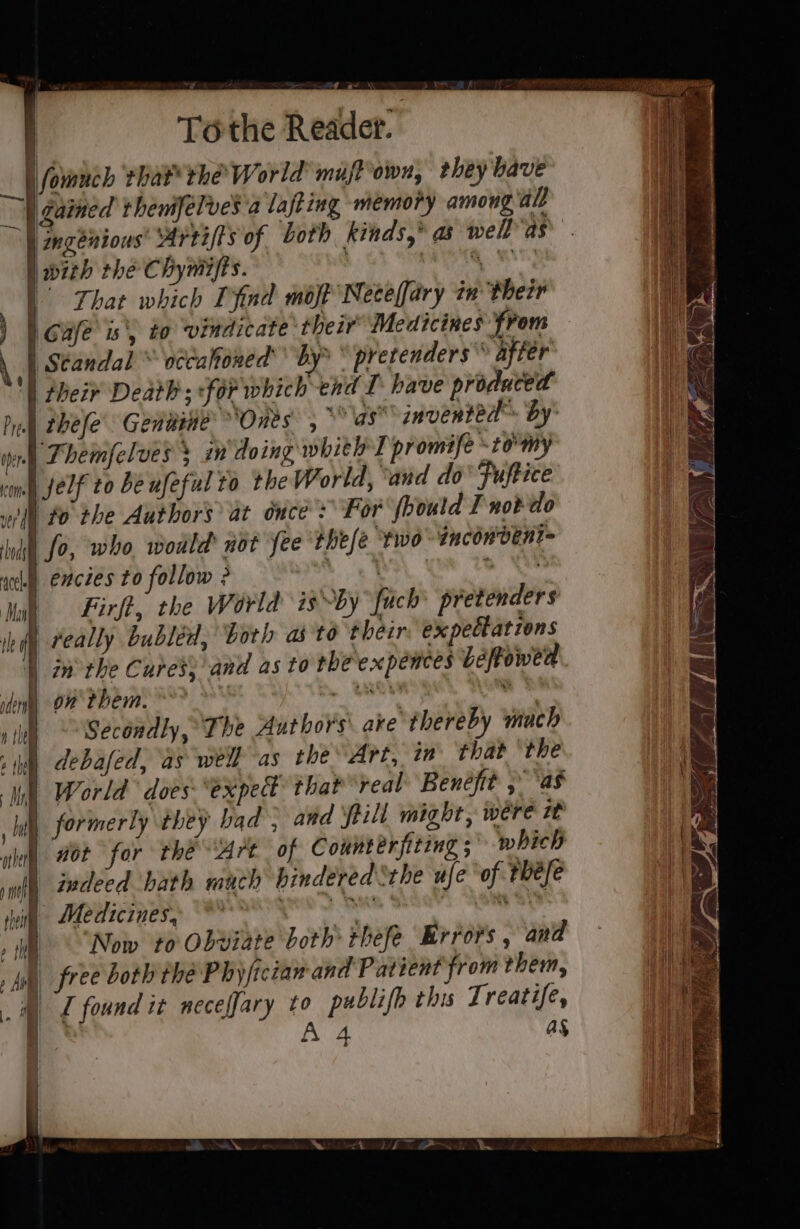 To the Reader.
ſomuch that the World muſt own, they have
gained themſelves a laſting memory among all
ingenious Artiſts of both kinds, as well as
with the Chymiſts.
That which I find moſt Neceſſary in their
Caſe is, to vindicate their Medicines from
Scandal occaſioned by pretenders after
their Death; for which end I have produced
theſe Genuine Ones, as invented by
Themſelves; in doing which I promiſe to my
ſelf to be uſeful to the World, and do Juſtice
to the Authors at once: For ſhould I not do
ſo, who would not ſee theſe two inconveni-
encies to follow?
Firſt, the World is by ſuch pretenders
really bubled, both as to their expectations
in the Cures, and as to the expences beſtowed
on them.
Secondly, The Authors are thereby much
debaſed, as well as the Art, in that the
World does expect that real Benefit, as
formerly they had, and ſtill might, were it
not for the Art of Counterfiting; which
indeed hath much hindered the uſe of theſe
Medicines,
Now to Obviate both theſe Errors, and
free both the Phyſician and Patient from them,
I found it neceſſary to publiſh this Treatiſe,
A 4 as